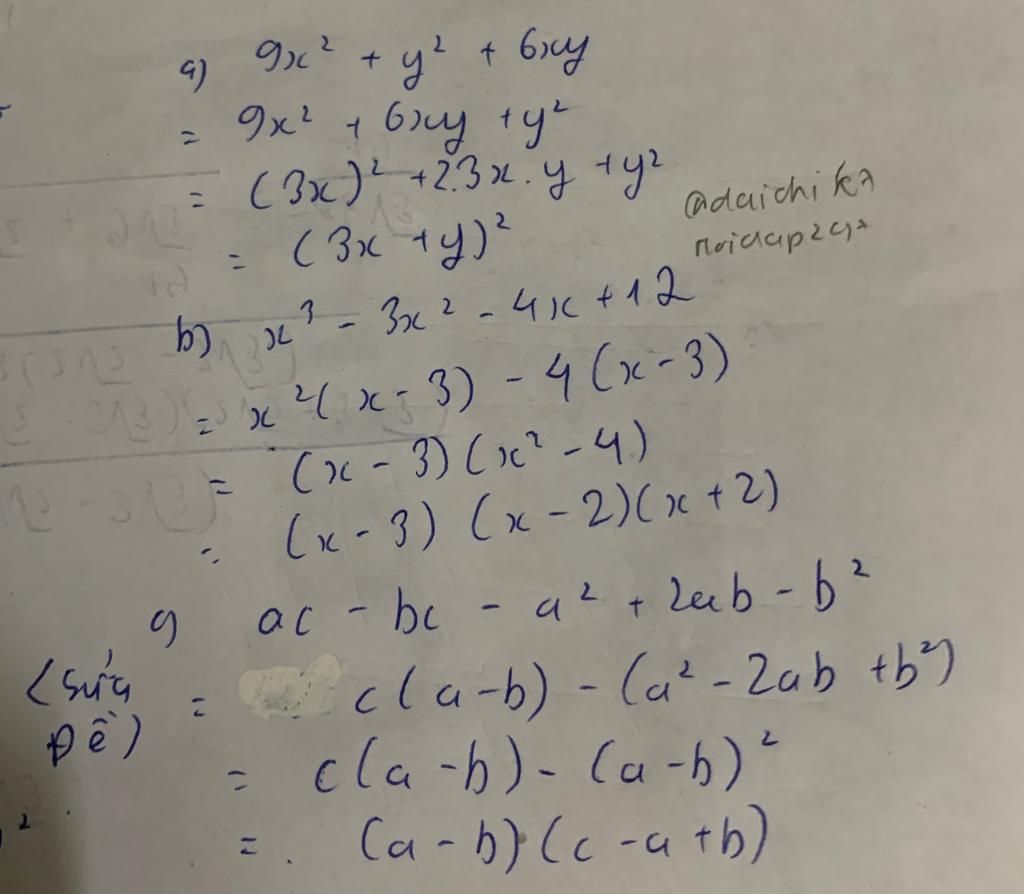 a) 9x² + y² + 6xy
= 9x² + 6xy + y²
= (3x)² + 2.3x.y + y²
= (3x + y)²
@daichi
b) x³ - 3x² - 4x + 12
= x²(x - 3) - 4(x - 3)
= (x - 3)(x² - 4)
= (x - 3)(x - 2)(x + 2)
c) ac - bc - a² + 2ab - b²
(Sửa Đề) = c(a - b) - (a² - 2ab + b²)
= c(a - b) - (a - b)²
= (a - b)(c - a + b)